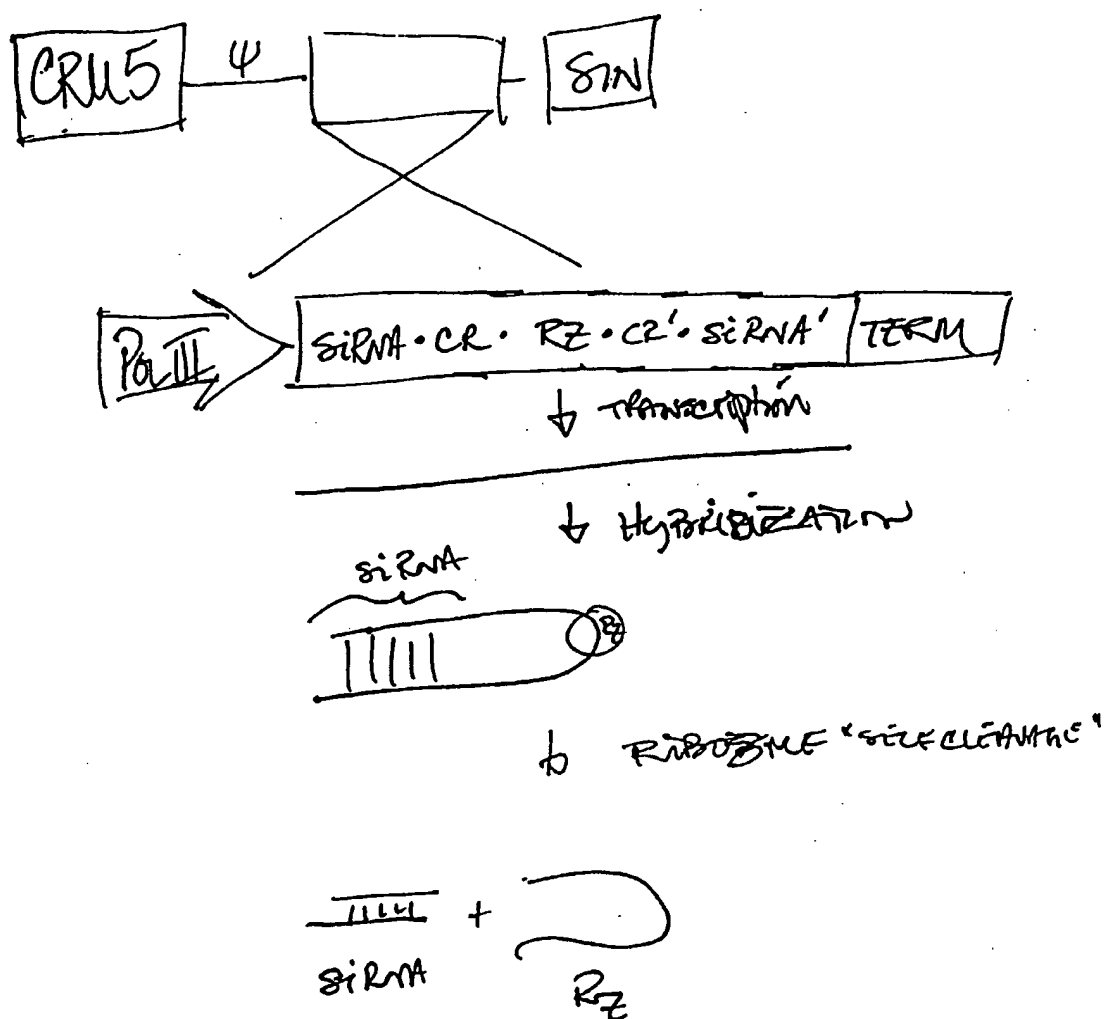 CRU5 ψ SIN
Pol III SiRNA · CR · RZ · CR' · SiRNA' TERM
↓ TRANSCRIPTION
↓ HYBRIDIZATION
SiRNA
RZ
↓ RIBOZYME "SELF CLEAVAGE"
+
SiRNA RZ